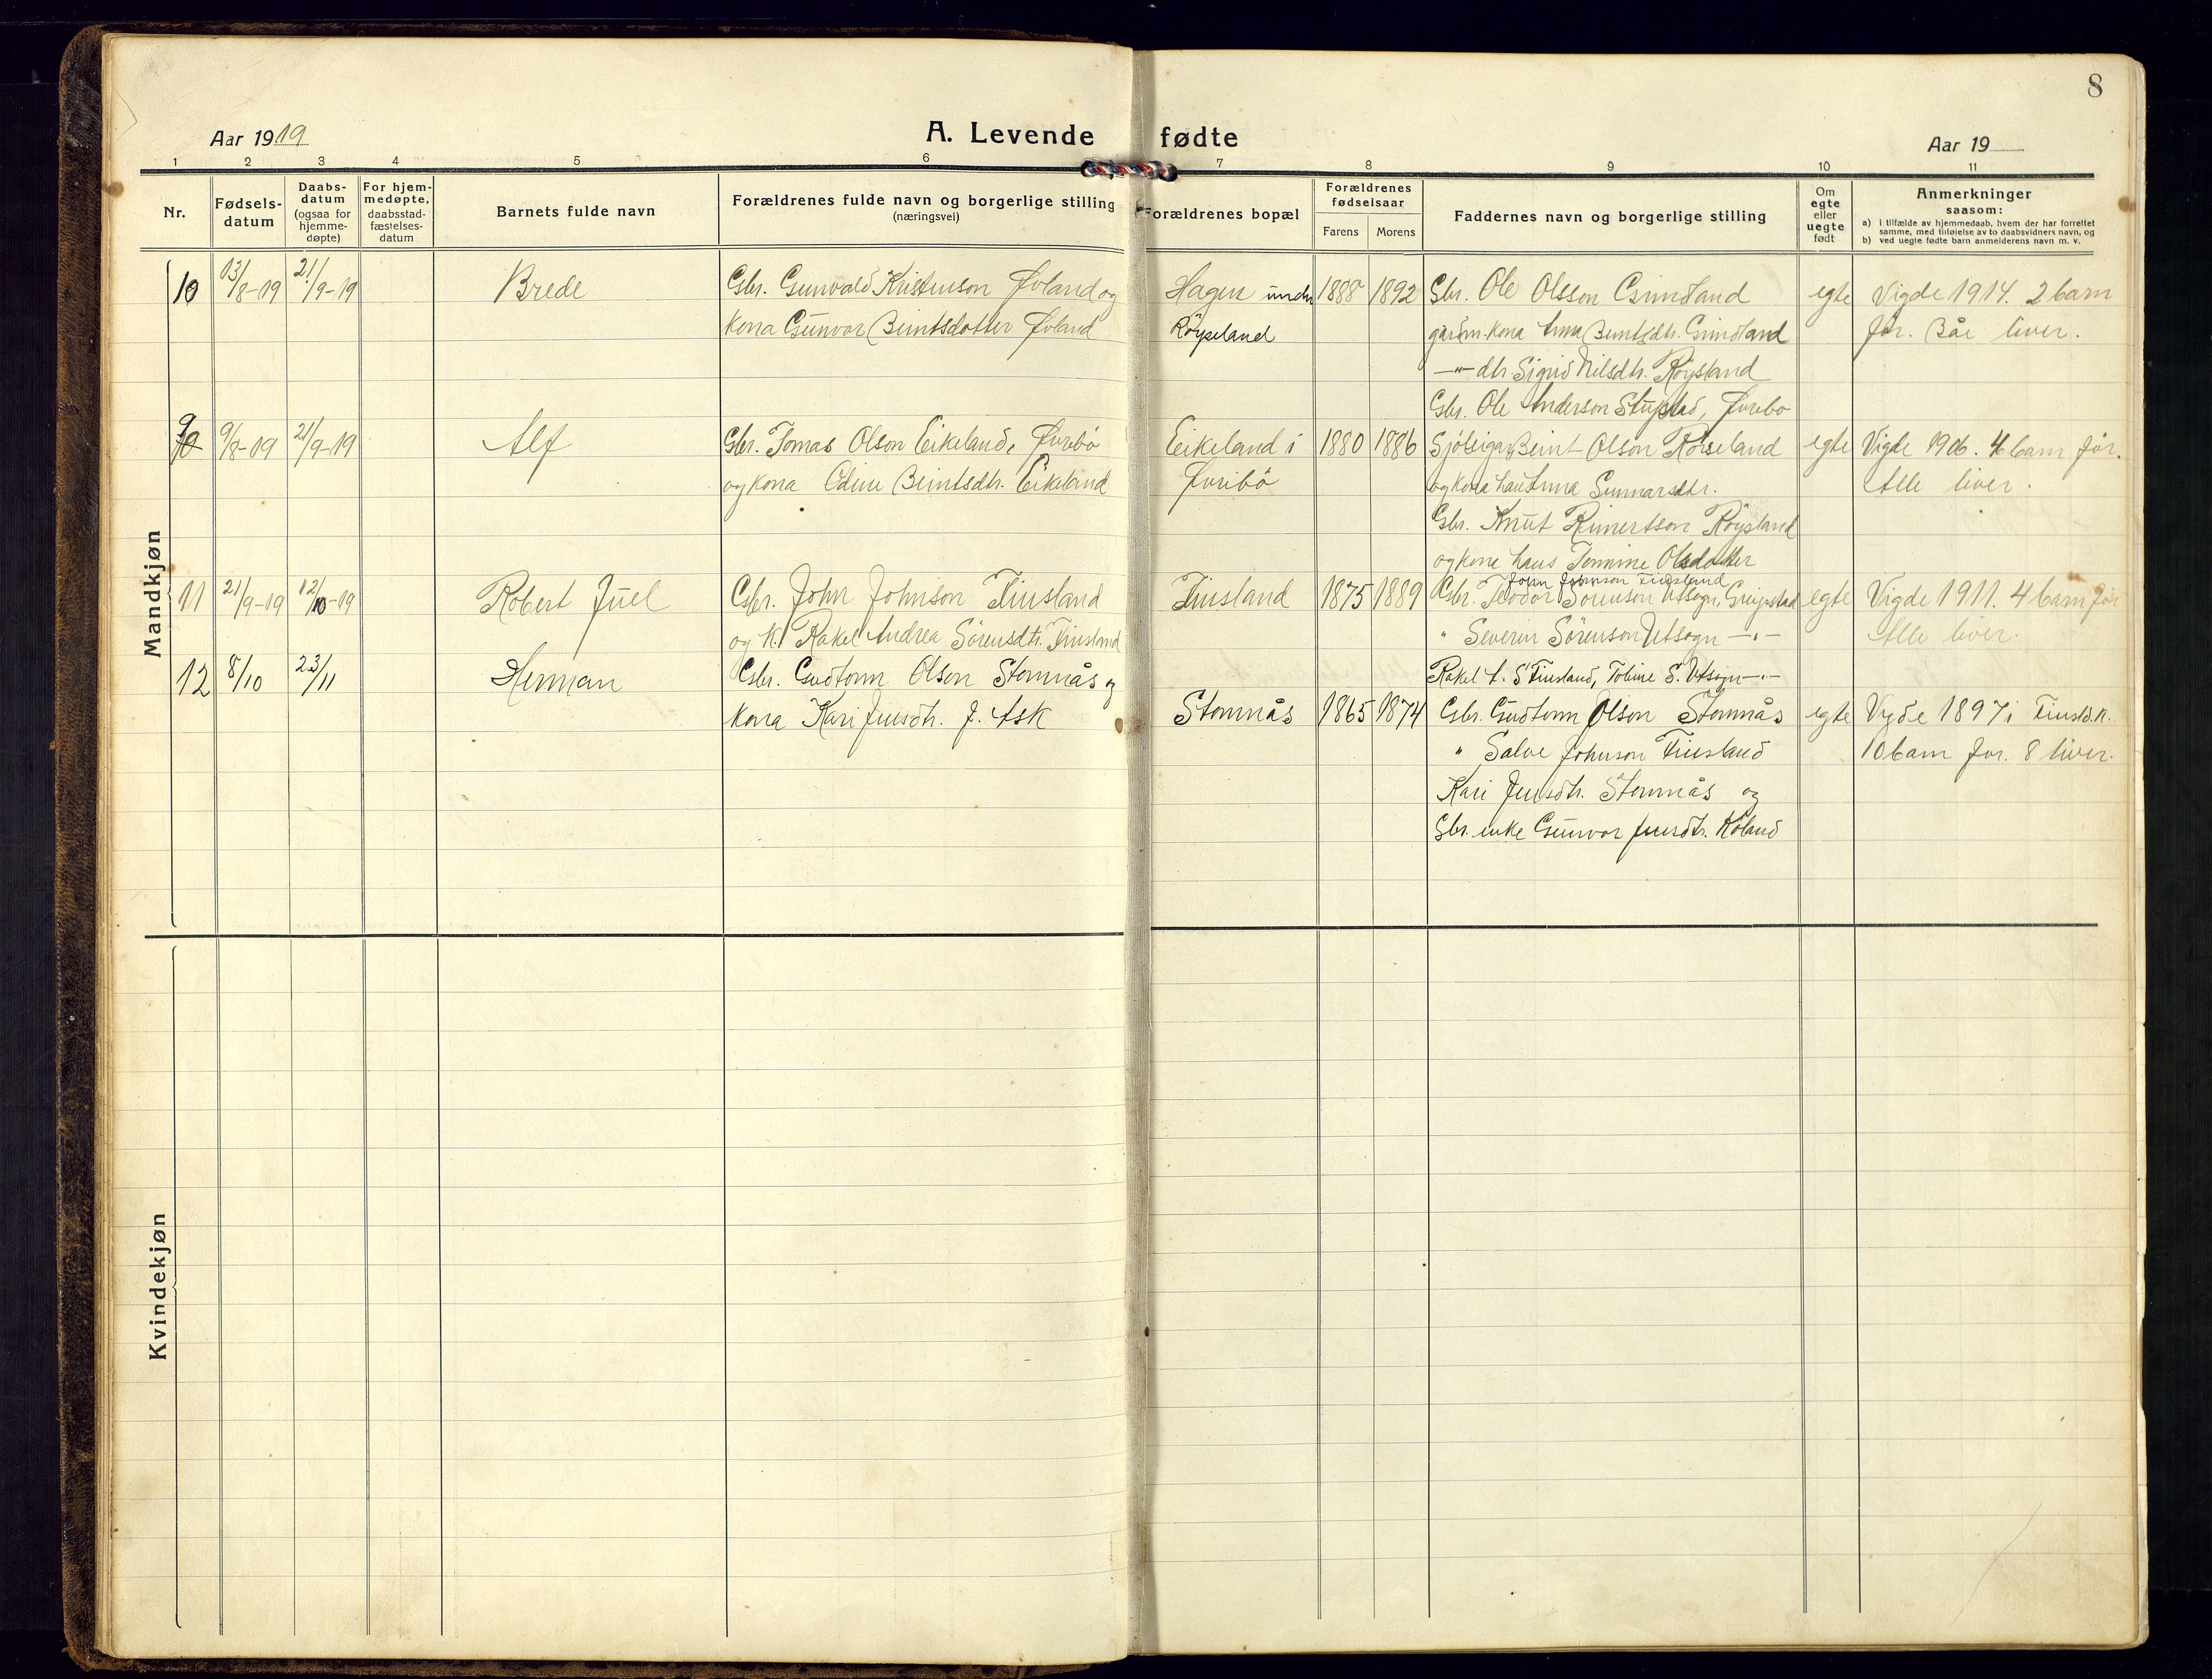 8
Aar 1919
A. Levende fødte
Aar 19
1 2 3 4 5 6 7 8 9 10 11
Nr.
Fødsels-
datum
Daabs-
datum
(ogsaa for
hjemme-
døpte)
For hjem-
medøpte,
daabsstad-
fæstelses-
datum
Barnets fulde navn
Forældrenes fulde navn og borgerlige stilling
(næringsvei)
Forældrenes bopæl
Forældrenes
fødselsaar
Farens Morens
Faddernes navn og borgerlige stilling
Om
egte
eller
uegte
født
Anmerkninger
saasom:
a) i tilfælde av hjemmedaab, hvem der har forrettet
samme, med tilføielse av to daabsvidners navn, og
b) ved uegte fødte barn anmelderens navn m. v.
Mandkjøn
10 13/8-19 21/9-19 Brede Gbr. Gunvald Kristenson Øvland og Hagen under 1888 1892 Gbr. Ole Olsson Grindland egte Vigde 1914. 2 barn
kona Gunvor Beintsdotter Øvland Røyseland gardm. kona Anna Beintsdtr. Grindland før. Båe liver.
—"— dtr. Sigrid Nilsdtr. Röysland
Gbr. Ole Anderson Stupstad, Øvrebo
9 9/8-19 21/9-19 Alf Gbr. Tomas Olson Eikeland, Øvrebö Eikeland i 1880 1886 Sjöleigar Beint Olson Röiseland egte Vigde 1906. 4 barn før.
og kona Odine Beintsdtr. Eikeland Øvrebö og kona hans Anna Gunnarsdtr. Alle liver.
Gbr. Knut Reinertson Röysland
og kone hans Tomine Olsdatter
John Johnson Finsland
11 21/9-19 12/10-19 Robert Juel Gbr. John Johnson Finsland Finsland 1875 1889 Gbr. Teodor Sörenson Utsogn, Greipstad egte Vigde 1911. 4 barn før
og K. Rakel Andrea Sörensdtr. Finsland " Severin Sörenson Utsogn —"— Alle liver.
12 8/10 23/11 Herman Gbr. Gudtorm Olson Stomnås og Rakel A. S Finsland, Tobine S. Utsogn —"—
kona Kari Jensdtr. J. Ask Stomnås 1865 1874 Gbr. Gudtorm Olson Stomnås egte Vigde 1897 i Finsld.k.
" Salve Johnson Finsland 10 barn før. 8 liver.
Kari Jensdtr. Stomnås og
Gbr. enke Gunvor Jensdtr. Röland
Kvindekjøn